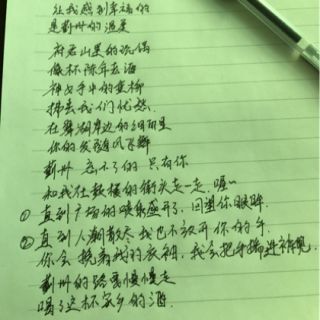 让我感到幸福的
是蓟州的温柔
府君山里的玩偶
像杯陈年老酒
神女手中的垂柳
拂去我们忧愁
在翠湖岸边的细雨里
你的发随风飞舞
蓟州 忘不了的 只有你
和我在鼓楼的街头走一走 喔~
① 直到广场的喷泉盛开了，回望你眼眸
② 直到人潮散尽 我也不放开你的手
你会挽着我的衣袖，我会把手揣进裤兜
蓟州的路要慢慢走
喝了这杯家乡的酒